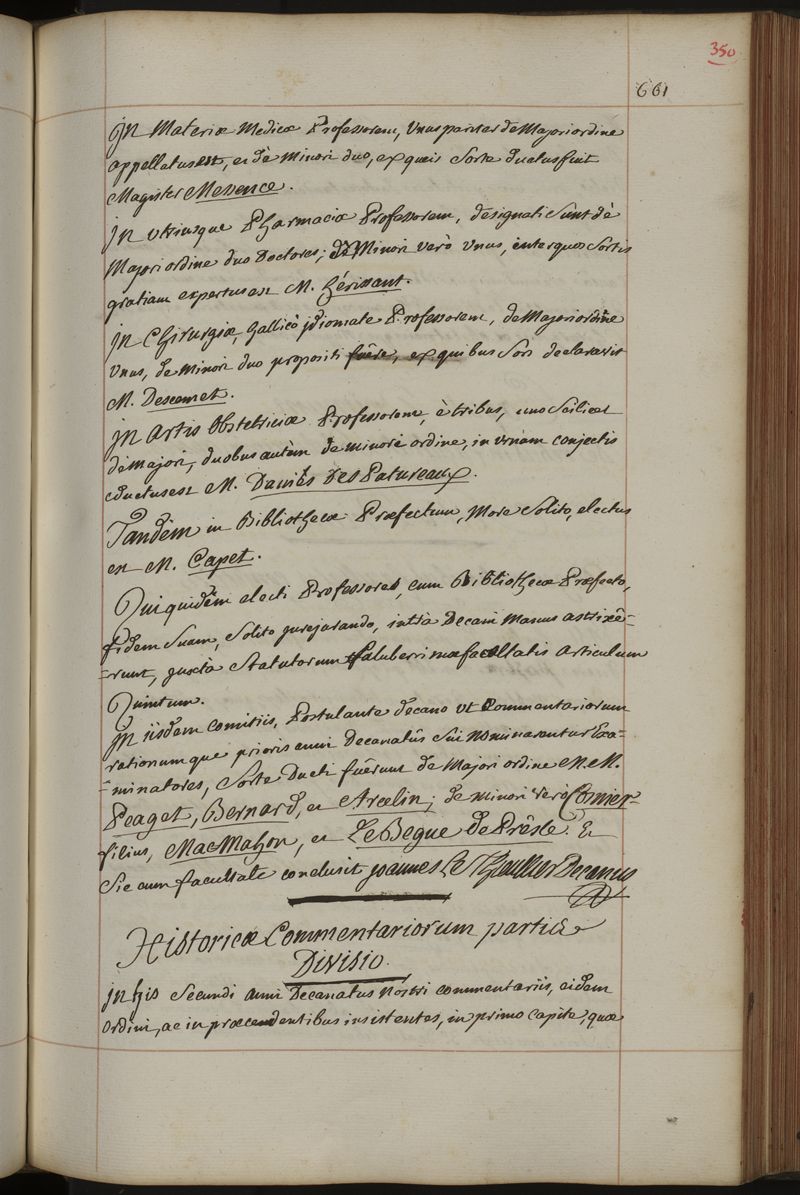 350
661
In Materiæ Medicæ Professorem, Unus pariter de Majori ordine
appellatus est, et dè Minori duo, ex queis Sorte ductus fuit
Magister Messence.
In Utriusque Pharmaciæ Professorem, designati Sunt dè
Majori ordine duo Doctores; de Minori verò Unus, inter quos Sortis
gratiam expertus est M. hérissant.
In Chirurgiæ, Gallicò jdiomate Professorem, de Majori ordine
Unus, de Minori duo propositi fuêre, ex quibus Sors declaravit
M. Descemet.
In Artis Obstetriciæ Professorem, è tribus, uno Scilicet
de Majori, duobus autèm de minori ordine, in urnam conjectis
eductus est M. Daniès Des Patureaux.
Tandèm in Bibliothecæ Præfectum, More Solito, electus
est M. Capet.
Qui quidèm electi Professores, cum Bibliothecæ Præfecto,
fidem Suam, Solito jurejurando, intrà Decani Manus astrixê-
-runt, juxtà Statutorum Saluberrimæ facultatis Articulum
Quintum.
In iisdem comitiis, Postulante decano ut Commentariorum
rationumque prioris anni Decanatûs Sui nominarentur Exa-
-minatores, Sorte Ducti fuêrunt de Majori ordine M.M.
Peaget, Bernard, et Arcelin; de minori verò Cosnier
filius, MacMahon, et Le Begue de Prêsle. &
Sic cum facultate conclusit joannes Le Thieullier Decanus
Historicæ Commentariorum partis
Divisio.
In his Secundi anni Decanatus Nostri commentariis, eidem
Ordini, ac in præcendentibus insistentes, in primo capite, quæ